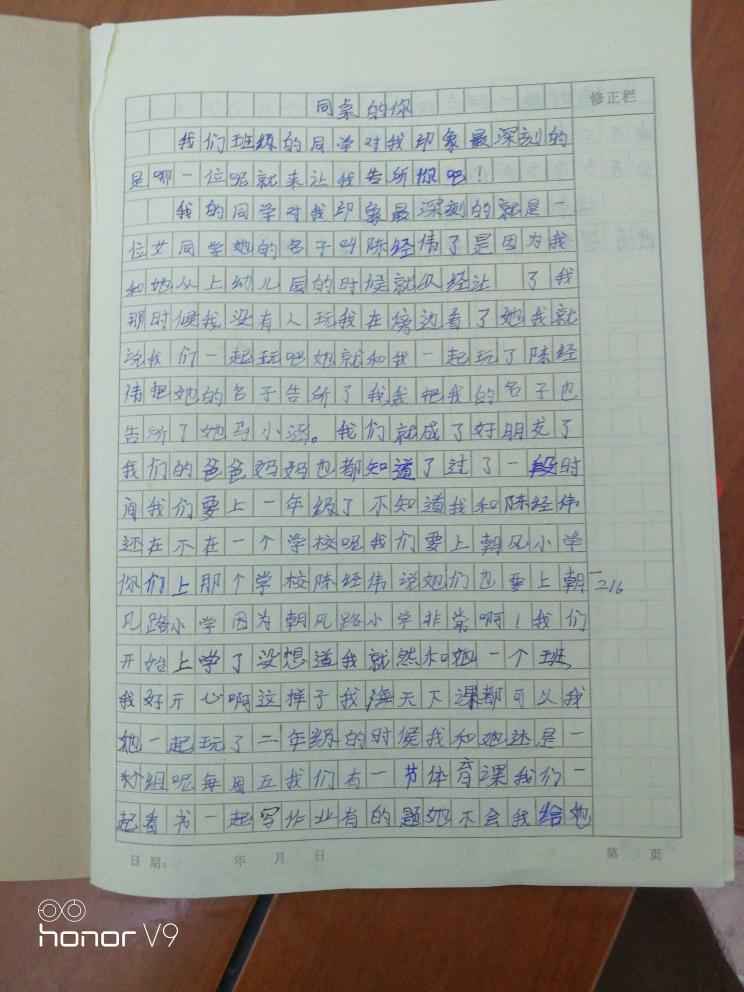 同桌的你
修正栏
我们班级的同学对我印象最深刻的
是哪一位呢就来让我告所你吧！
我的同学对我印象最深刻的就是一
位女同学她的名子叫陈经伟了是因为我
和她从上幼儿园的时候就从经让 了我
那时候我没有人玩我在傍边看了她我就
说我们一起玩吧她就和我一起玩了陈经
倩把她的名子告所了我我把我的名子也
告所了她马小 。我们就成了好朋友了
我们的爸爸妈妈也都知道了过了一段时
间我们要上一年级了不知道我和陈经伟
还在不在一个学校呢我们要上朝凤小学
你们上那个学校陈经伟说她们也要上朝
216
凤路小学因为朝凤路小学非常啊！我们
开始上学了没想道我就然和她一个班
我好开心啊这样子我海天下课都可以我
她一起玩了二年级的时候我和她还是一
个组呢每周五我们有一节体育课我们一
起看书一起写作业有的题她不会我给她
日期： 年 月 日
第 页
honor V9